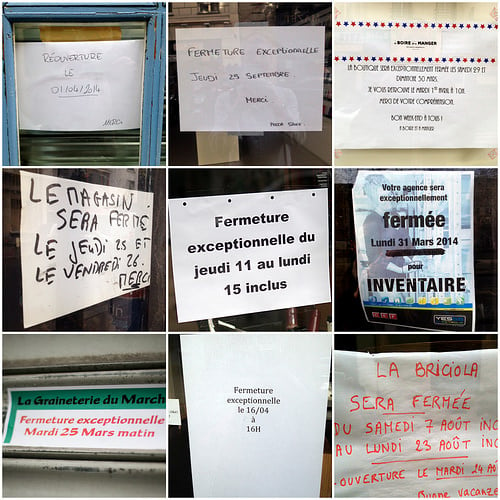 RÉOUVERTURE
LE
01/04/2014
MERCI.
FERMETURE EXCEPTIONNELLE
JEUDI 25 SEPTEMBRE.
MERCI
À BOIRE et à MANGER
LA BOUTIQUE SERA EXCEPTIONNELLEMENT FERMÉE LES SAMEDI 29 ET
DIMANCHE 30 MARS.
JE VOUS RETROUVE LE MARDI 1ER AVRIL À 10H.
MERCI DE VOTRE COMPRÉHENSION.
BON WEEK END À TOUS !
À BOIRE ET À MANGER
LE MAGASIN
SERA FERMÉ
LE JEUDI 25 ET
LE VENDREDI 26.
MERCI
Fermeture
exceptionnelle du
jeudi 11 au lundi
15 inclus
Votre agence sera
exceptionnellement
fermée
Lundi 31 Mars 2014
pour
INVENTAIRE
YES
La Graineterie du March
Fermeture exceptionnelle
Mardi 25 Mars matin
Fermeture
exceptionnelle
le 16/04
à
16H
LA BRICIOLA
SERA FERMÉE
DU SAMEDI 7 AOÛT INC
AU LUNDI 23 AOÛT INC
OUVERTURE LE MARDI 24 AO
Bonne vacanze